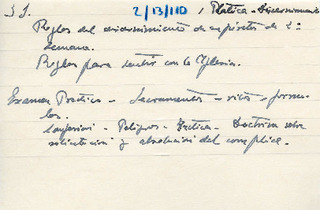 2/13/110 , Platica - Discernimiento
Reglas del discernimiento de espíritus de 2ª
semana.
Reglas para sentir con la Iglesia.
Examen Practico - Sacramentos - ritos - formu-
las.
Confesion - Peligros - Practica - Doctrina sobre
solicitacion y absolucion del complice.